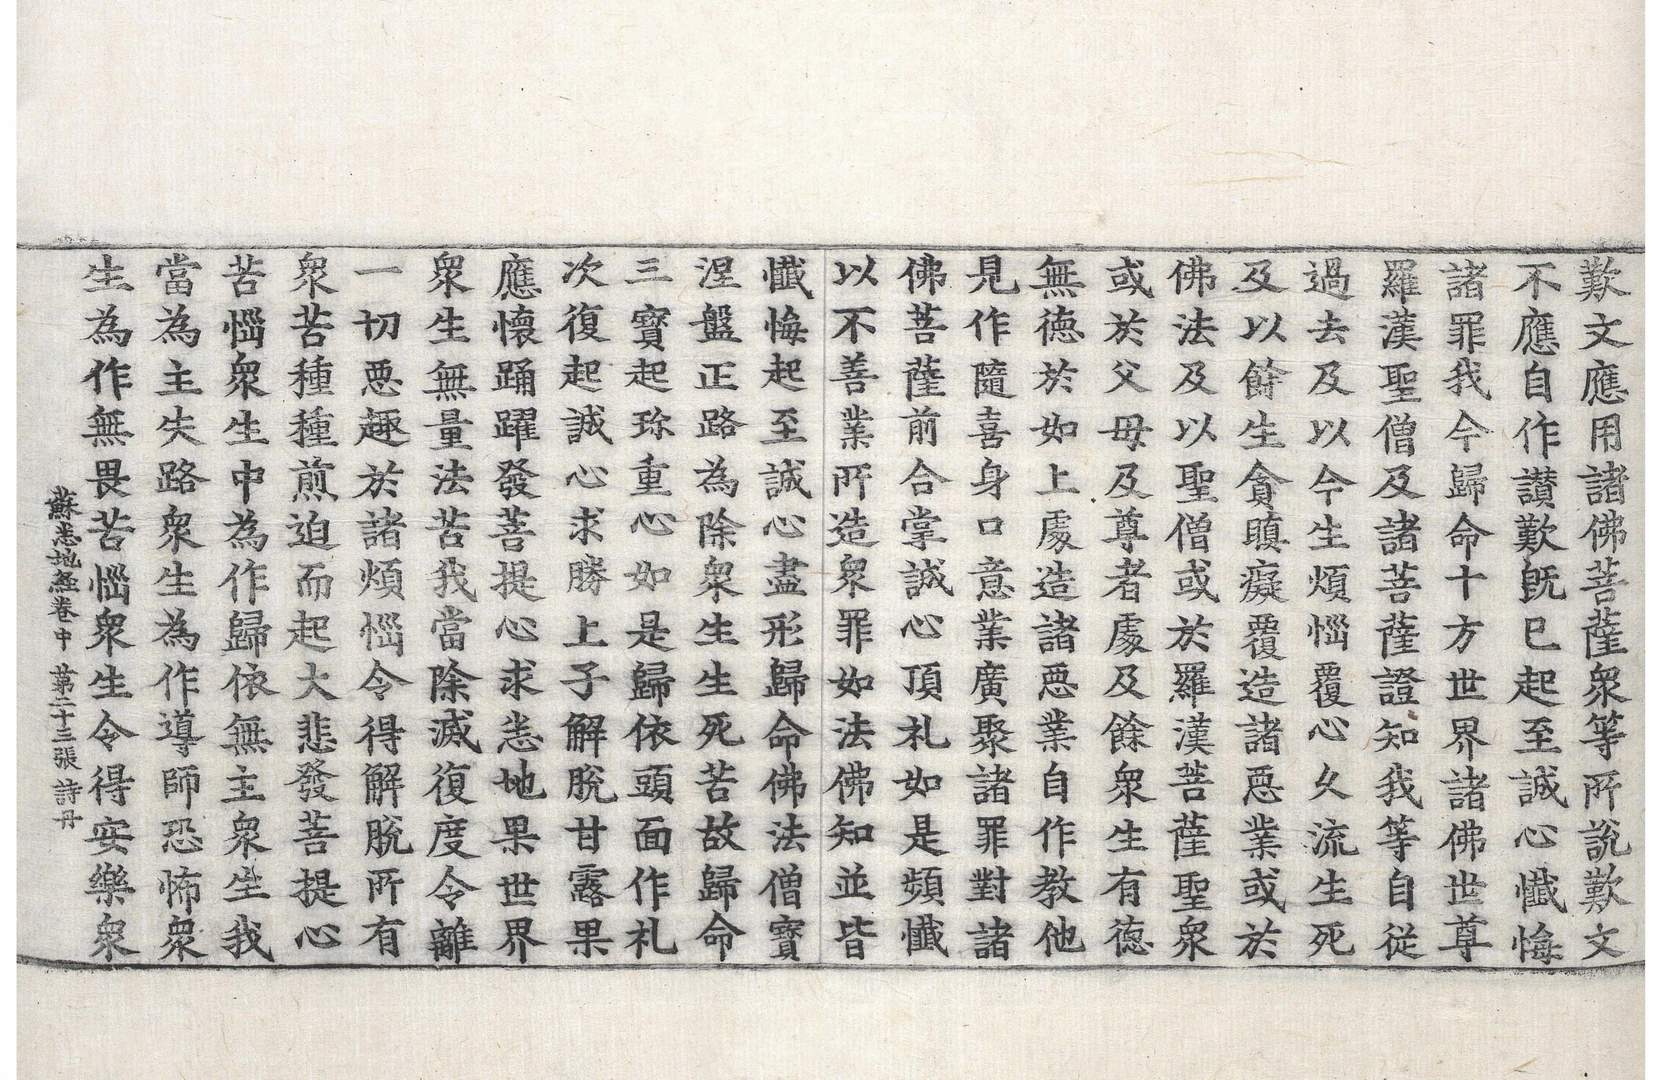 歎文應用諸佛菩薩衆等所說歎文
不應自作讃歎旣已起至誠心懺悔
諸罪我今歸命十方世界諸佛世尊
羅漢聖僧及諸菩薩證知我等自從
過去及以今生煩惱覆心久流生死
及以餘生貪瞋癡覆造諸惡業或於
佛法及以聖僧或於羅漢菩薩聖衆
或於父母及尊者處及餘衆生有德
無德於如上處造諸惡業自作教他
見作隨喜身口意業廣聚諸罪對諸
佛菩薩前合掌誠心頂礼如是頻懺
以不善業所造衆罪如法佛知並皆
懺悔起至誠心盡形歸命佛法僧寶
涅盤正路為除衆生生死苦故歸命
三寶起珎重心如是歸依頭面作礼
次復起誠心求勝上子解脫甘露果
應懷踊躍發菩提心求悉地果世界
衆生無量法苦我當除滅復度令離
一切惡趣於諸煩惱令得解脫所有
衆苦種種煎迫而起大悲發菩提心
苦惱衆生中為作歸依無主衆生我
當為主失路衆生為作導師恐怖衆
生為作無畏苦惱衆生令得安樂衆
蘇悉地經卷中 第二十三張 詩丹